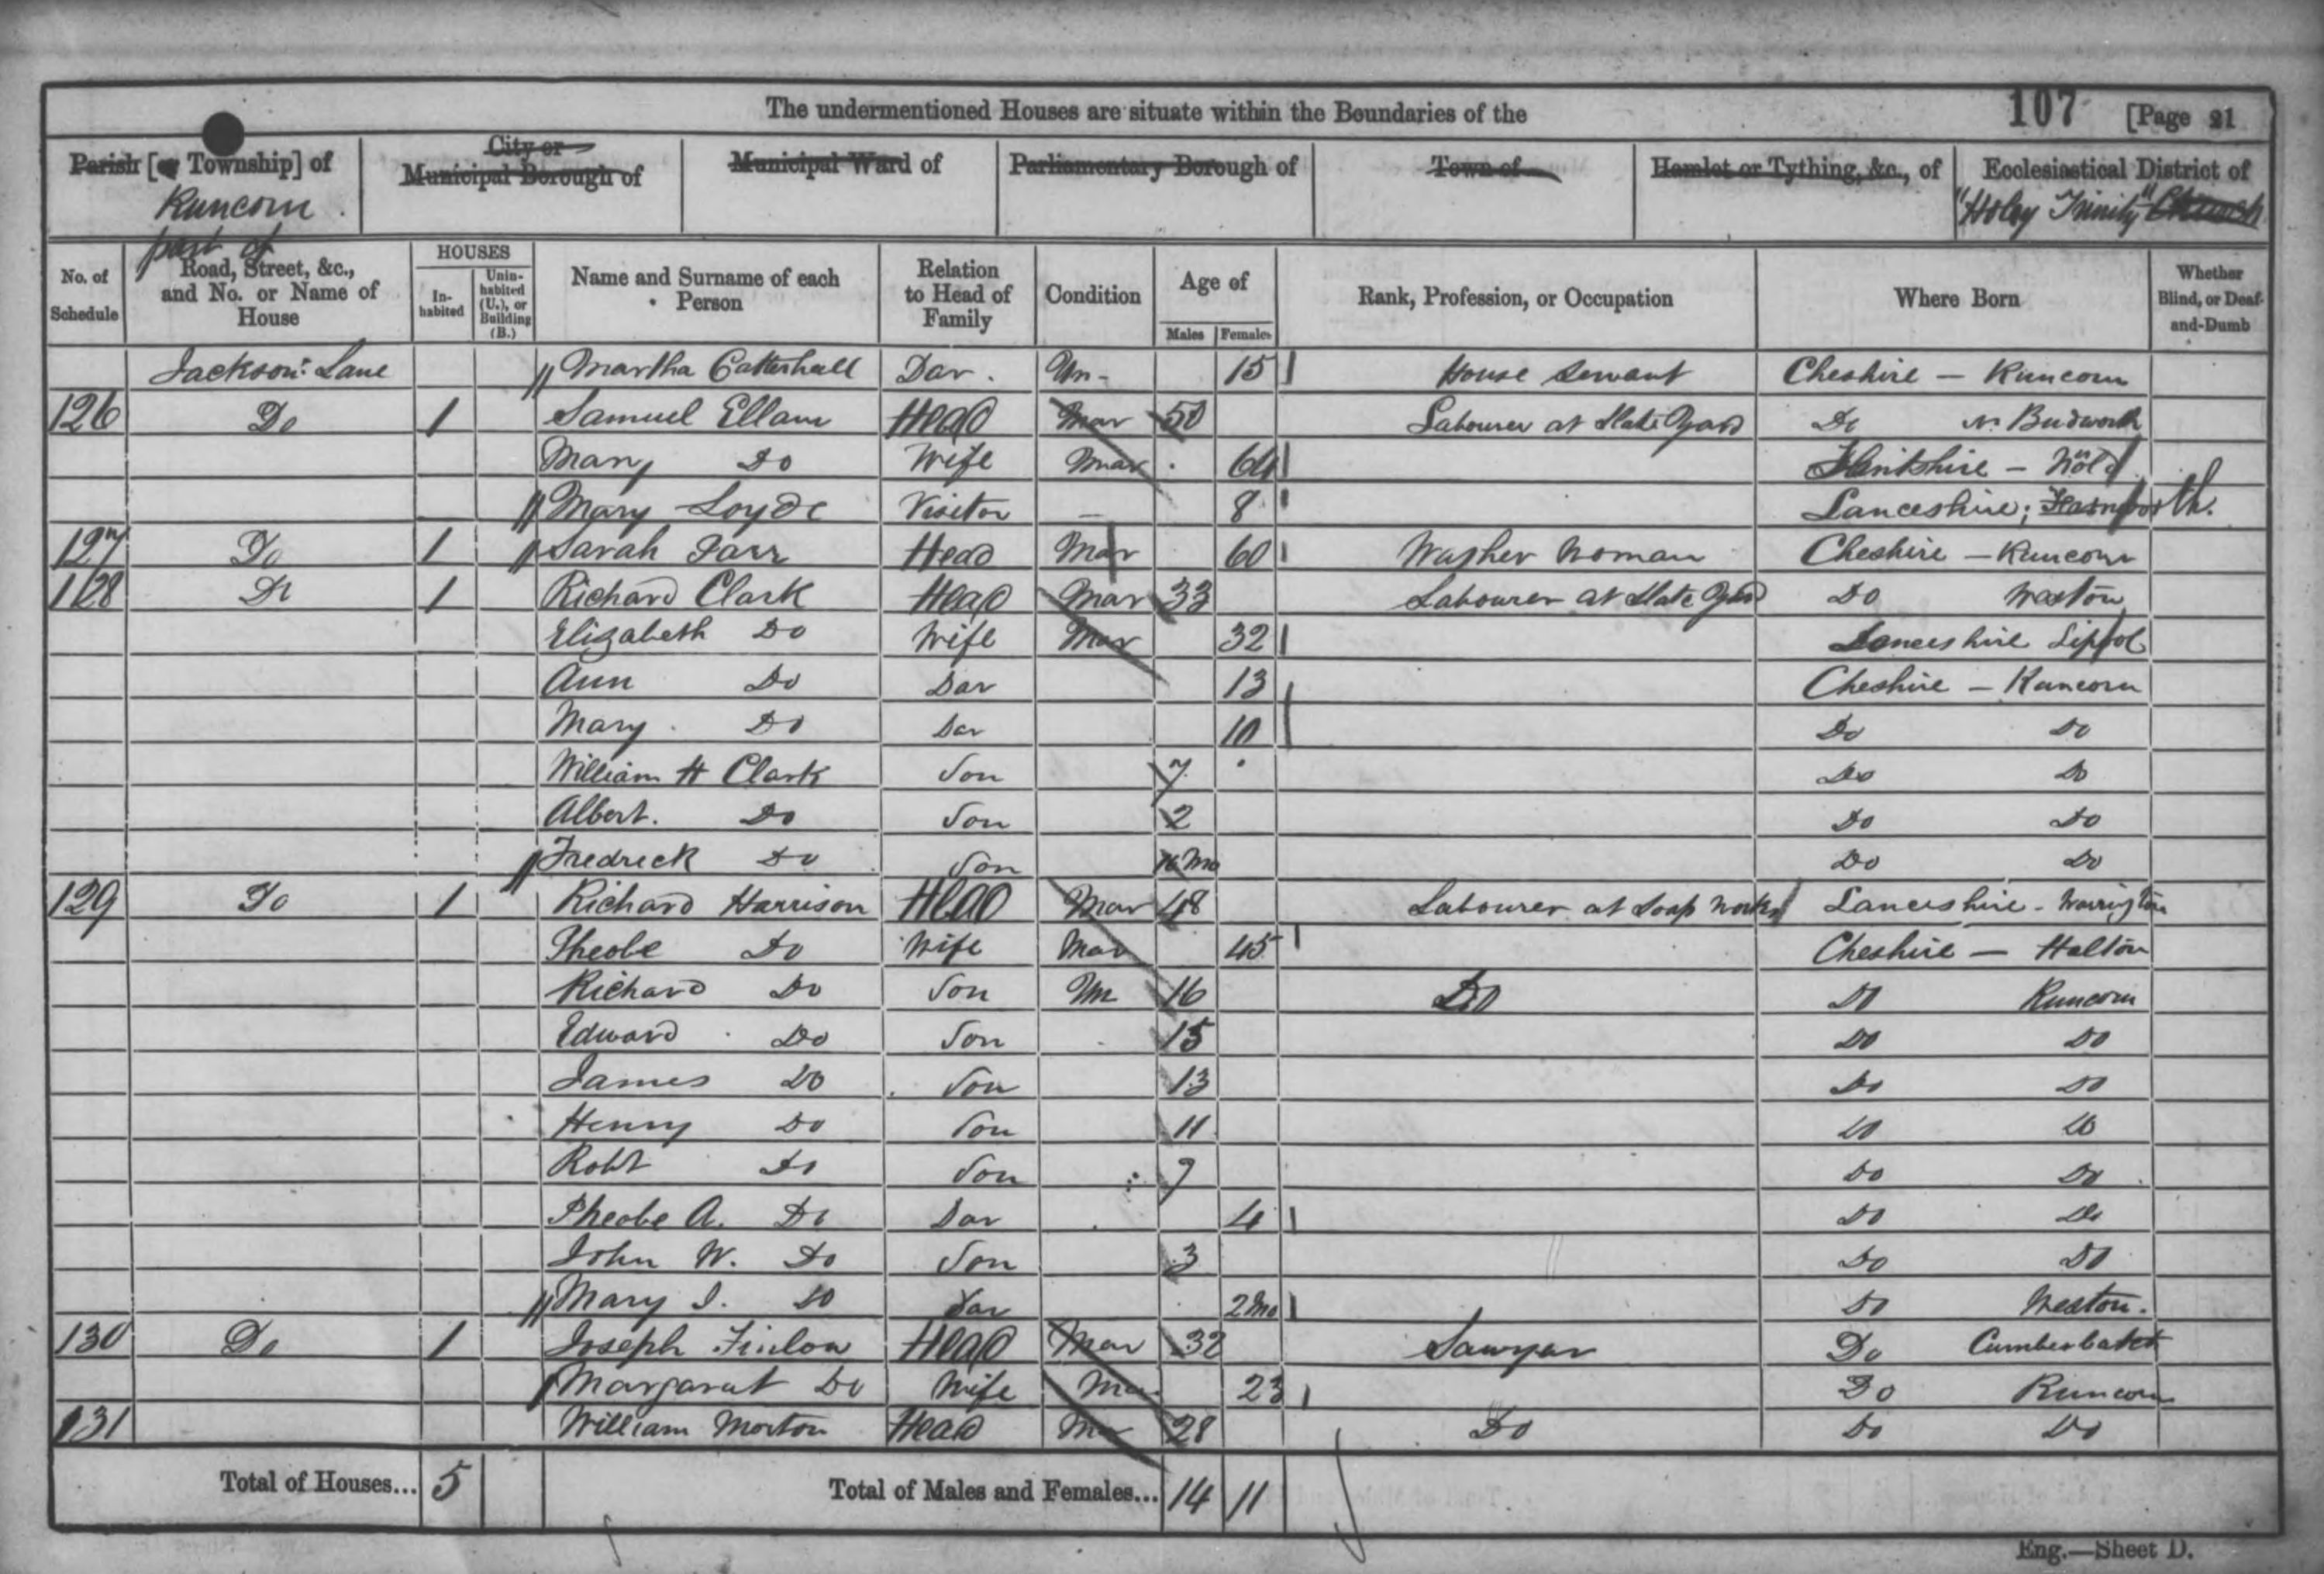 The undermentioned Houses are situate within the Boundaries of the 107 [Page 21
Parish [or Township] of City or Municipal Borough of Municipal Ward of Parliamentary Borough of Town of Hamlet or Tything, &c., of Ecclesiastical District of
Runcorn "Holey Trinity" Church
part of
No. of Schedule Road, Street, &c., and No. or Name of House HOUSES In-habited Unin-habited (U.), or Building (B.) Name and Surname of each Person Relation to Head of Family Condition Age of Males Females Rank, Profession, or Occupation Where Born Whether Blind, or Deaf-and-Dumb
Jacksons Lane Martha Catterhall Dar. Un- 15 House Servant Cheshire — Runcorn
126 Do 1 Samuel Ellam Head Mar 50 Labourer at Slate Yard Do N. Budworth
Mary Do Wife Mar 64 Flintshire — Mold
Mary Loyde Visitor — 8 Lanceshire;
127 Do 1 Sarah Farr Head Mar 60 Washer Woman Cheshire — Runcorn
128 Do 1 Richard Clark Head Mar 33 Labourer at Slate Yard Do Weston
Elizabeth Do Wife Mar 32 Lanceshire Lipool
Ann Do Dar 13 Cheshire — Runcorn
Mary Do Dar 10 Do Do
William H Clark Son 7 Do Do
Albert. Do Son 2 Do Do
Fredreck Do Son Mo Do Do
129 Do 1 Richard Harrison Head Mar 48 Labourer at Soap Works Lanceshire - Warrington
Pheobe Do Wife Mar 45 Cheshire — Halton
Richard Do Son Un 16 Do Do Runcorn
Edward Do Son 15 Do Do
James Do Son 13 Do Do
Henry Do Son 11 Do Do
Robt Do Son 7 Do Do
Pheobe A. Do Dar 4 Do Do
John W. Do Son 3 Do Do
Mary J. Do Dar 2 Mo Do Weston.
130 Do 1 Joseph Finlow Head Mar 32 Sawyer Do Cumberbatch
Margarat Do Wife Mar 23 Do Runcorn
131 William Morton Head Mar 28 Do Do Do
Total of Houses... 5 Total of Males and Females... 14 11
Eng.—Sheet D.